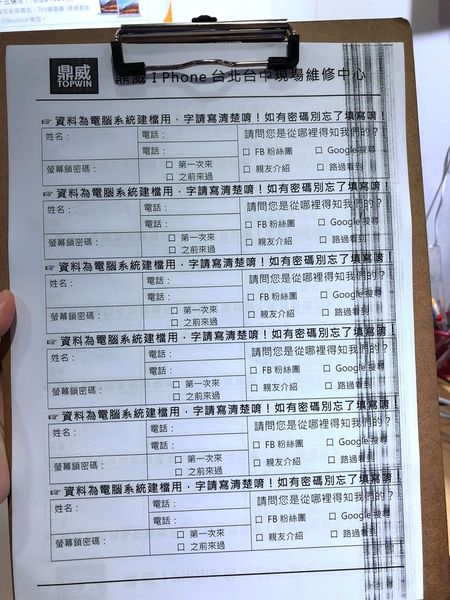 鼎威
TOPWIN
鼎威 I Phone 台北台中現場維修中心
☞ 資料為電腦系統建檔用，字請寫清楚唷！如有密碼別忘了填寫唷！
姓名： 電話： 請問您是從哪裡得知我們的？
電話： □ FB 粉絲團 □ Google搜尋
螢幕鎖密碼： □ 第一次來 □ 親友介紹 □ 路過看到
□ 之前來過
☞ 資料為電腦系統建檔用，字請寫清楚唷！如有密碼別忘了填寫唷！
姓名： 電話： 請問您是從哪裡得知我們的？
電話： □ FB 粉絲團 □ Google搜尋
螢幕鎖密碼： □ 第一次來 □ 親友介紹 □ 路過看到
□ 之前來過
☞ 資料為電腦系統建檔用，字請寫清楚唷！如有密碼別忘了填寫唷！
姓名： 電話： 請問您是從哪裡得知我們的？
電話： □ FB 粉絲團 □ Google搜尋
螢幕鎖密碼： □ 第一次來 □ 親友介紹 □ 路過看到
□ 之前來過
☞ 資料為電腦系統建檔用，字請寫清楚唷！如有密碼別忘了填寫唷！
姓名： 電話： 請問您是從哪裡得知我們的？
電話： □ FB 粉絲團 □ Google搜尋
螢幕鎖密碼： □ 第一次來 □ 親友介紹 □ 路過看到
□ 之前來過
☞ 資料為電腦系統建檔用，字請寫清楚唷！如有密碼別忘了填寫唷！
姓名： 電話： 請問您是從哪裡得知我們的？
電話： □ FB 粉絲團 □ Google搜尋
螢幕鎖密碼： □ 第一次來 □ 親友介紹 □ 路過看到
□ 之前來過
☞ 資料為電腦系統建檔用，字請寫清楚唷！如有密碼別忘了填寫唷！
姓名： 電話： 請問您是從哪裡得知我們的？
電話： □ FB 粉絲團 □ Google搜尋
螢幕鎖密碼： □ 第一次來 □ 親友介紹 □ 路過看到
□ 之前來過